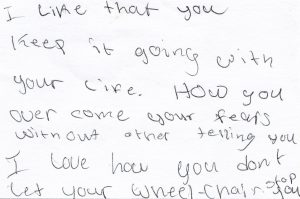 I like that you
Keep it going with
your Life. How you
over come your fears
without other telling you
I love how you don't
let your wheel-chair stop
you